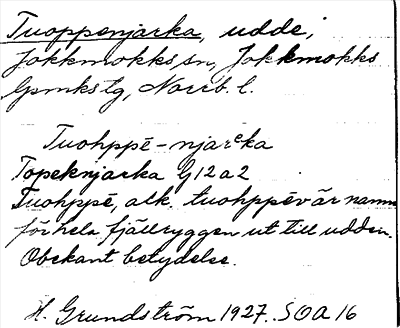 Tuoppenjarka, udde,
Jokkmokks sn, Jokkmokks
lpmkstg, Norrb. l.
Tuohppē-njarᵉka
Topeknjarka G12a2
Tuohppē, alk. tuohppēv är namn
för hela fjällryggen ut till udden.
Obekant betydelse.
H. Grundström 1927. SOA 16